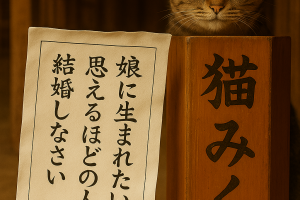 娘に生まれたい
思えるほどの人
結婚しなさい
猫みく